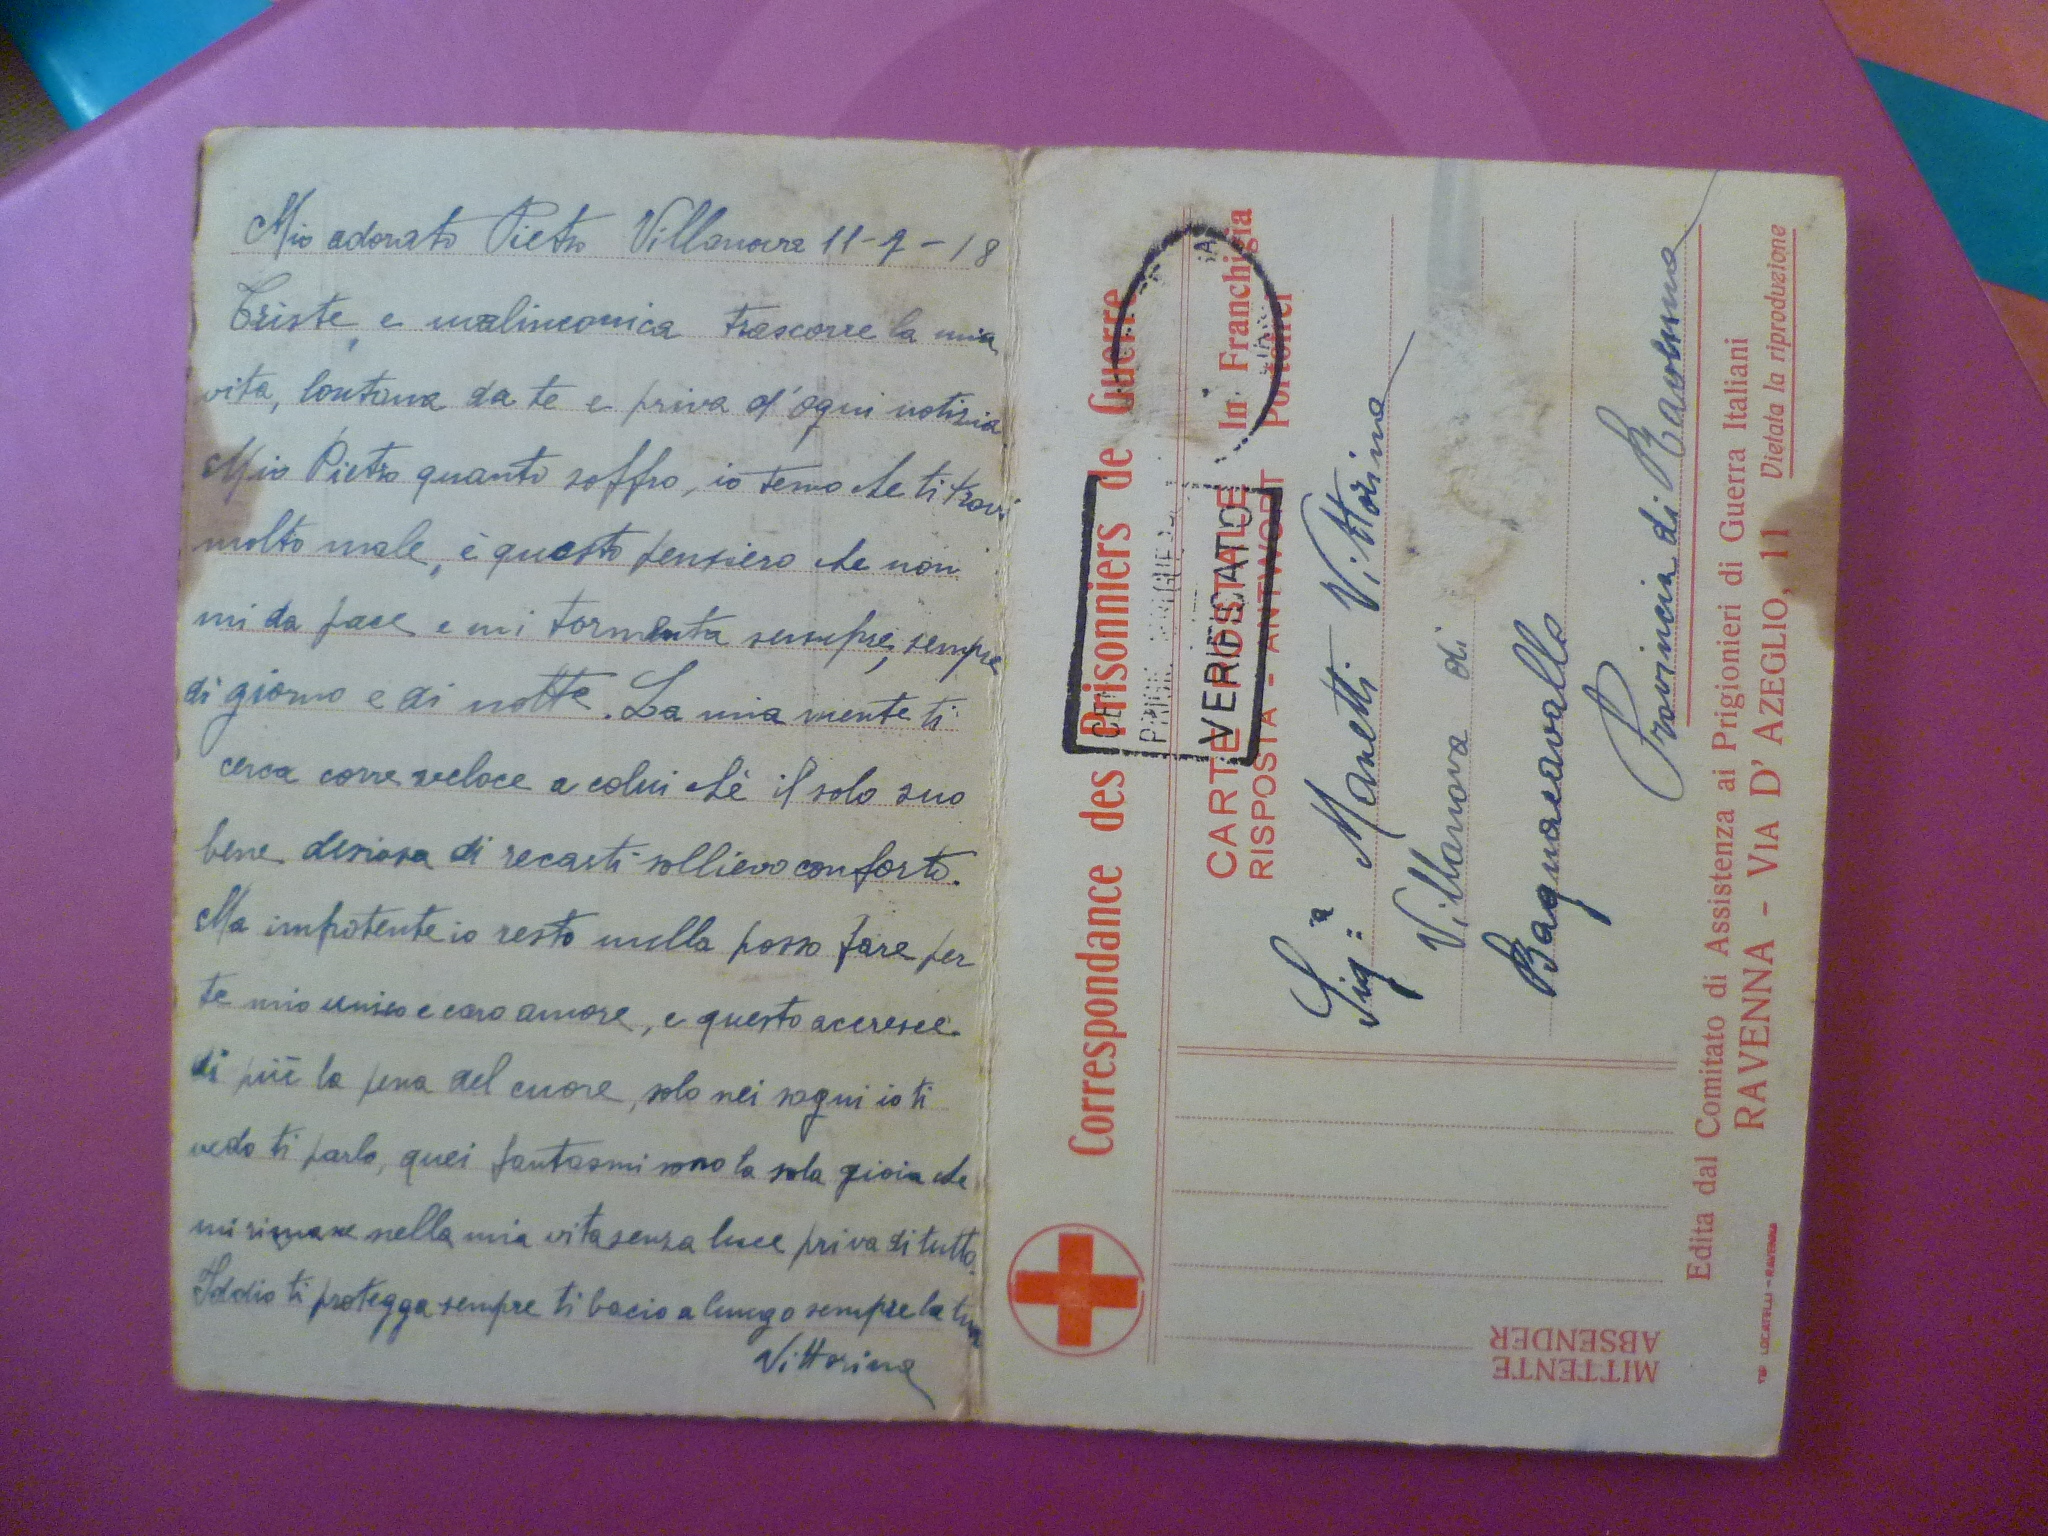 Mio adorato Pietro Villanova 11-9-18
Triste, e malinconica trascorre la mia
vita, lontana da te e priva d'ogni notizia
Mio Pietro quanto soffro, io temo che ti trovi
molto male, è questo pensiero che non
mi da pace e mi tormenta sempre, sempre
di giorno e di notte. La mia mente ti
cerca corre veloce a colui ch'è il solo suo
bene desiosa di recarti sollievo conforto.
Ma impotente io resto nulla posso fare per
te mio unico e caro amore, e questo accresce
di più la pena del cuore, solo nei sogni io ti
vedo ti parlo, quei fantasmi sono la sola gioia che
mi rimane nella mia vita senza luce priva di tutto.
Iddio ti protegga sempre ti bacio a lungo sempre la tua
Vittorina
Correspondance des Prisonniers de Guerre
In Franchigia
Portofrei
CARTE POSTALE
RISPOSTA - ANTWORT
VERIFICATO
Sig.ª Manetti Vittorina
Villanova di
Bagnacavallo
Provincia di Ravenna
MITTENTE
ABSENDER
Edita dal Comitato di Assistenza ai Prigionieri di Guerra Italiani
RAVENNA - VIA D' AZEGLIO, 11
Vietata la riproduzione
TIP. LOCATELLI - RAVENNA